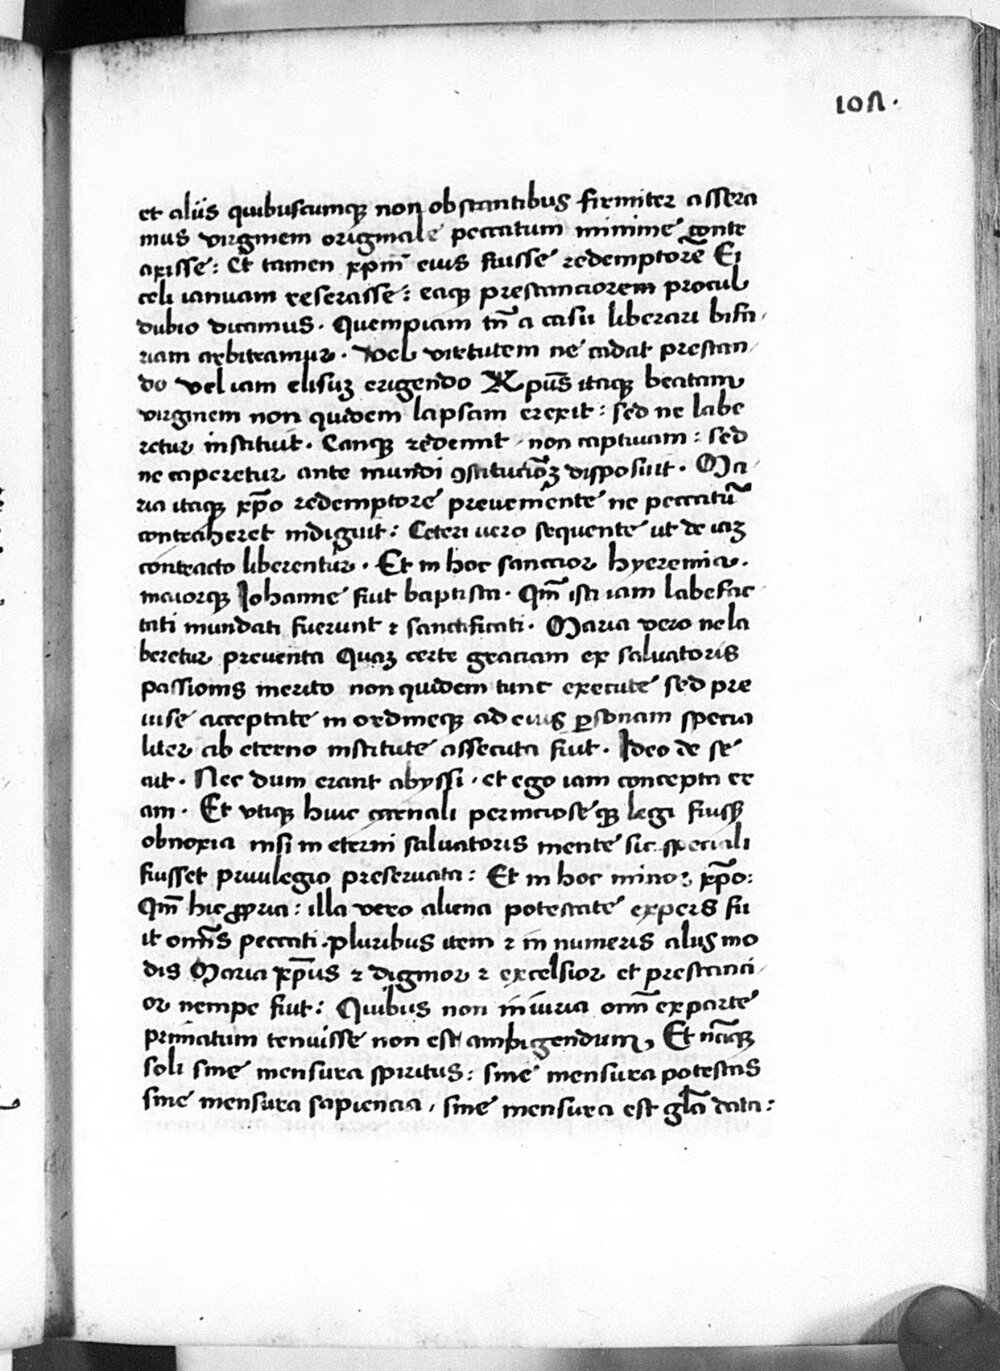 107.
et aliis quibuscumqꝫ non obstantibus firmiter assera
mus virginem originale peccatum minime conte
axisse: Et tamen xp̄m eius fuisse redemptorē Ei
celi ianuam reserasse: eaqꝫ prestanciorem procul
dubio dicamus. Quempiam tn̄ a casu liberari bifa,
riam arbitramur. Vel virtutem ne cadat prestan,
do vel iam elisuꝫ erigendo Xpūs itaqꝫ beatam
virginem non quidem lapsam erexit: sed ne labe
retur instituit. Eanqꝫ redemit, non captivam: sed
ne caperetur ante mundi ꝯstitucōꝫ disposuit. Ma,
ria itaqꝫ xp̄o redemptore preveniente ne peccatū
contraheret indiguit: Ceteri vero sequente ut de iaꝫ
contracto liberentur. Et in hoc sanctior hyeremia.
maiorqꝫ Johanne fuit baptista. Qm̄ isti iam labefac
tati mundati fuerunt ⁊ sanctificati. Maria vero ne la
beretur preventa Quaꝫ certe graciam ex salvatoris
passionis merito non quidem tunc execute sed pre
uise acceptate in ordineqꝫ ad eius ꝑsonam specia
liter ab eterno institute assecuta fuit. Ideo de se
ait. Nec dum erant abyssi, et ego iam concepta er
am. Et utiqꝫ huic carnali perniciose qꝫ legi fuisꝫ
obnoxia nisi in eterni salvatoris mente sic speciali
fuisset privilegio preservata: Et in hoc minor xp̄o:
Qm̄ hic ꝓpria: illa vero aliena potestate expers fu
it om̄s peccati. pluribus item ⁊ in numeris alijs mo
dis Maria xp̄us ⁊ dignior ⁊ excelsior et prestanci,
or nempe fuit: Quibus non iniuria om̄ ex parte
primatum tenuisse non est ambigendum, Et nāqꝫ
soli sine mensura spiritus: sine mensura potestas
sine mensura sapiencia, sine mensura est gl̄a data: